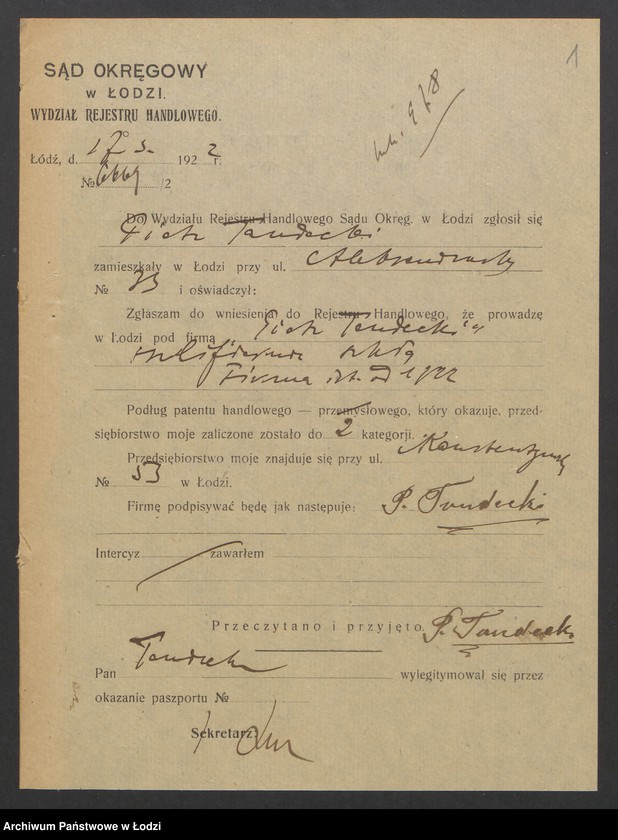 1
SĄD OKRĘGOWY
w ŁODZI.
WYDZIAŁ REJESTRU HANDLOWEGO.
Łódź, d. 17 3. 1922 r.
№ 6669 /2
Do Wydziału Rejestru Handlowego Sądu Okręg. w Łodzi zgłosił się
Piotr Tandecki
zamieszkały w Łodzi przy ul. Aleksandrowska
№ 33 i oświadczył:
Zgłaszam do wniesienia do Rejestru Handlowego, że prowadzę
w Łodzi pod firmą „Piotr Tandecki"
szkła
Firma ist. od 1922
Podług patentu handlowego — przemysłowego, który okazuje, przed-
siębiorstwo moje zaliczone zostało do 2 kategorji.
Przedsiębiorstwo moje znajduje się przy ul. Konstantynowska
№ 53 w Łodzi.
Firmę podpisywać będę jak następuje: P. Tandecki
Intercyz zawarłem
Przeczytano i przyjęto. P. Tandecki
Pan Tandecki wylegitymował się przez
okazanie paszportu №
Sekretarz:
Archiwum Państwowe w Łodzi